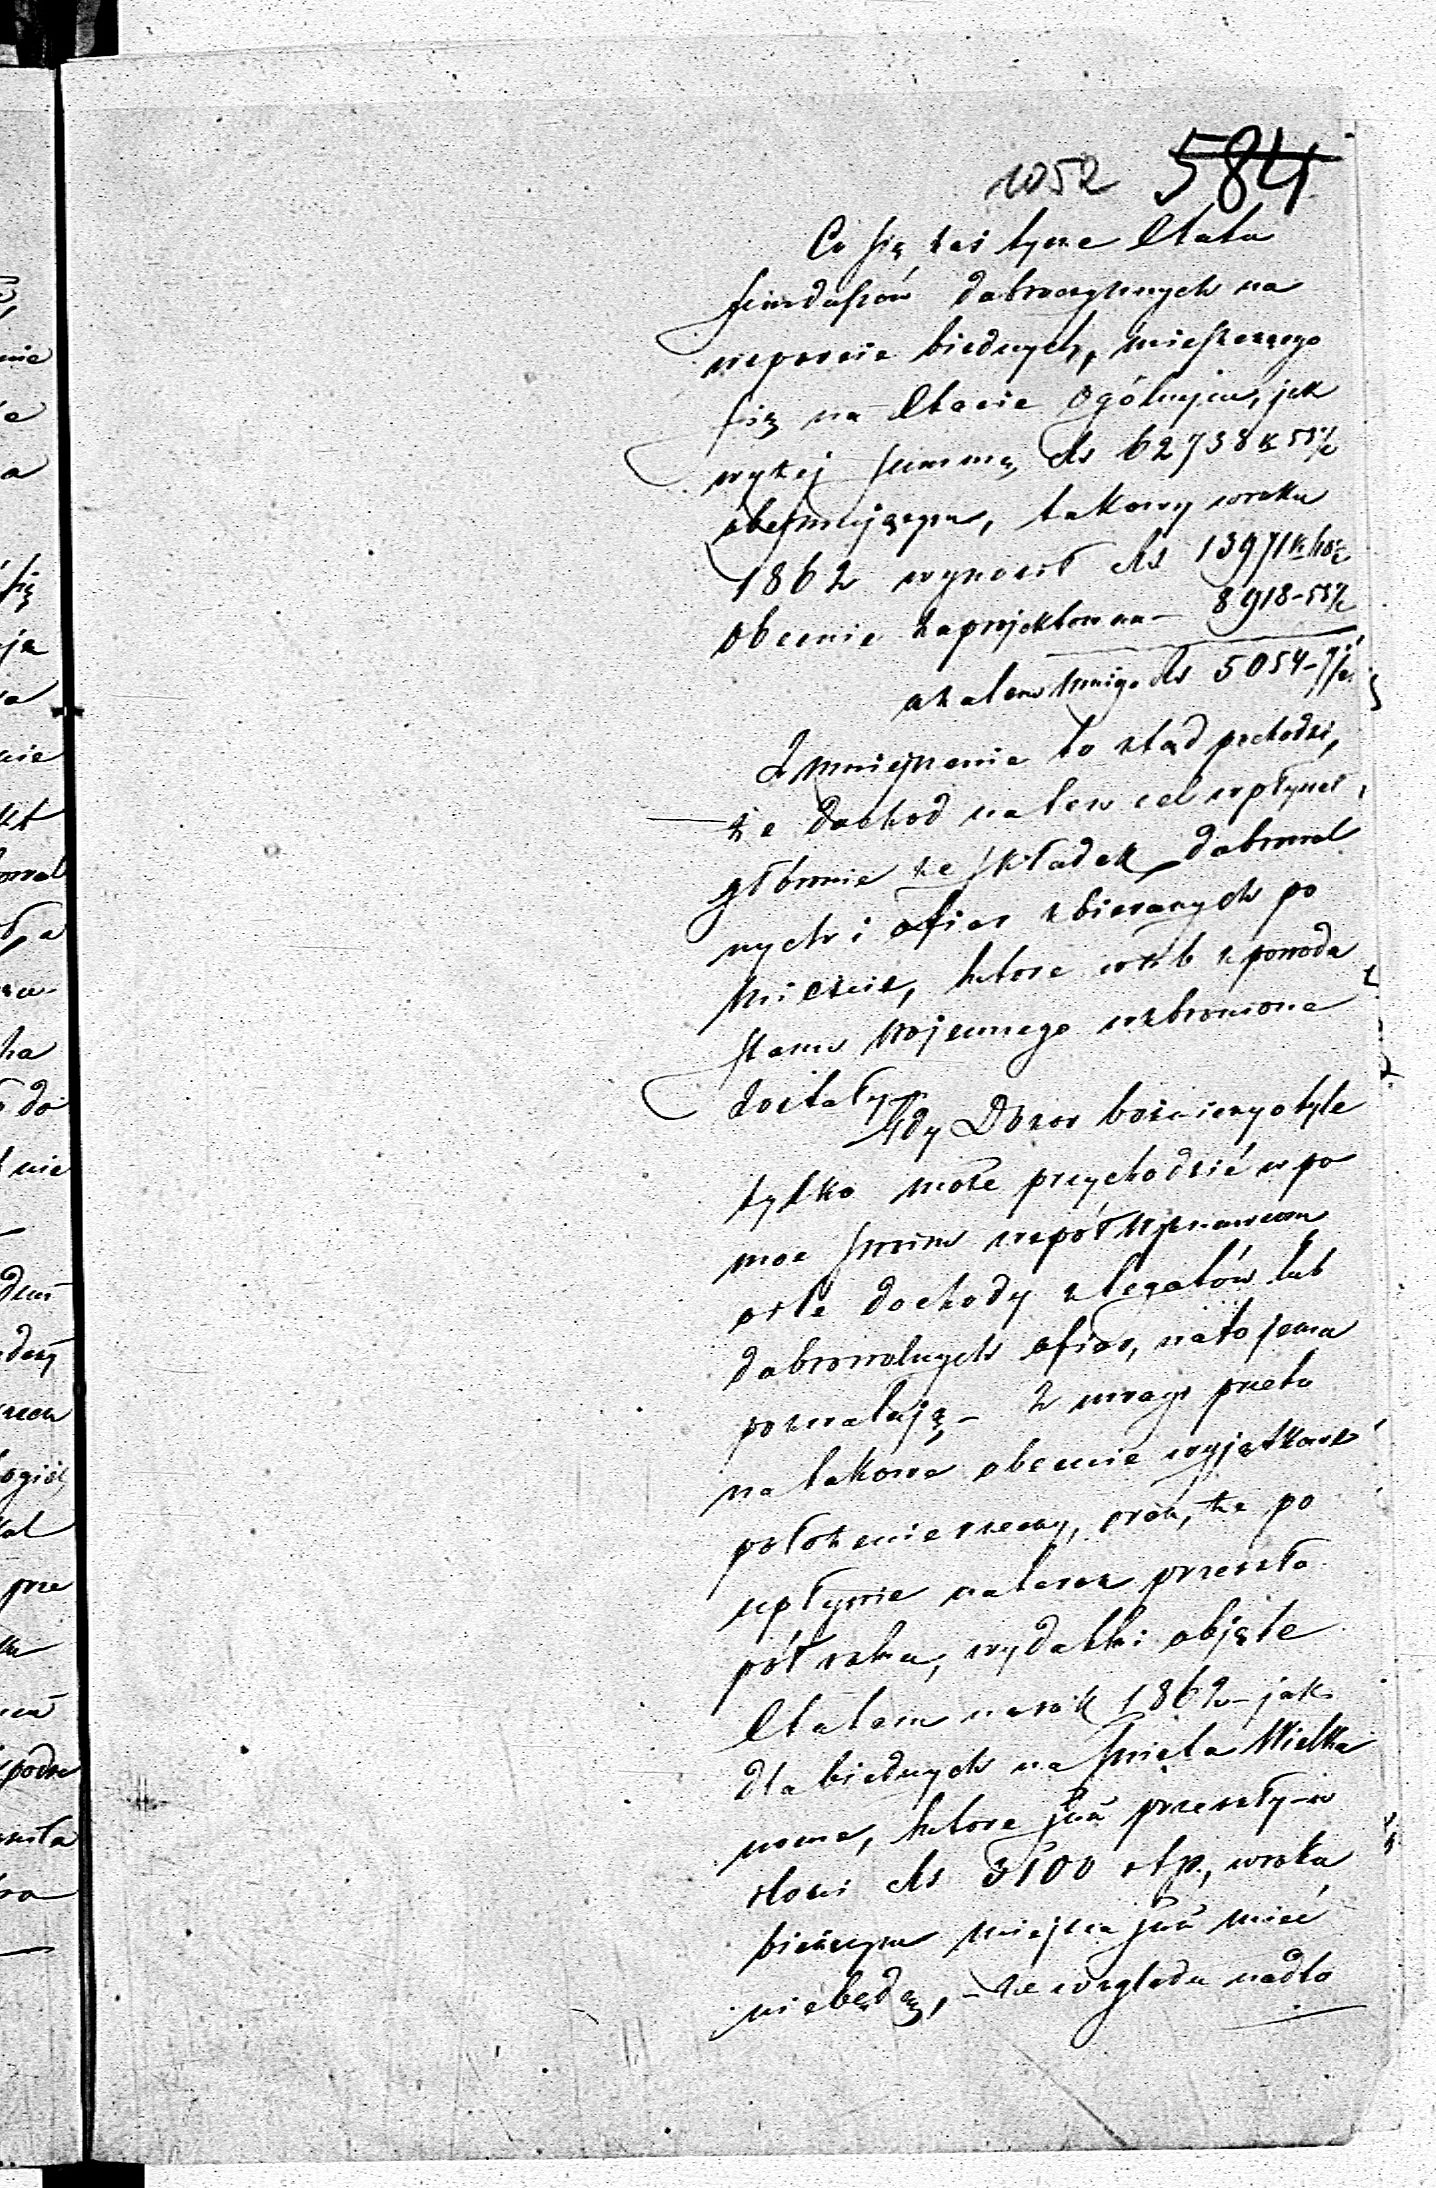 1052 584
Co się zaś tycze Etatu
funduszów dobroczynnych na
wsparcie biednych, mieszczącego
się na Etacie Ogólnym, jak
wyżej summę Rs 62738 k 55½
obejmującym, takowy w roku
1862 wynosił Rs 13971 k
obecnie zaprojektowano 8918-55½
a zatem mniej Rs 5054-
Zmniejszenie to ztąd pochodzi,
że dochod na ten cel wpłynął
głównie ze składek dobrowol
nych i ofiar zbieranych po
mieście, które z powodu
stanu wojennego wzbronione
zostały
Gdy Dozor bożniczy o tyle
tylko może przychodzić w po
moc swoim współwyznawcom
o ile dochody z legatów lub
dobrowolnych ofiar, na to jemu
pozwalają – Z uwagi przeto
na takowe obecnie wyjątkowe
położenie rzeczy, oraz, że po
upłynie nateraz przeszło
pół roku, wydatki objęte
Etatem na rok 1862 – jak
dla biednych na Święta Wielka
nocne, które już przeszły – w
ilości Rs 3100 itp., w roku
bieżącym miejsca już mieć
niebędą, – ze względu nadto